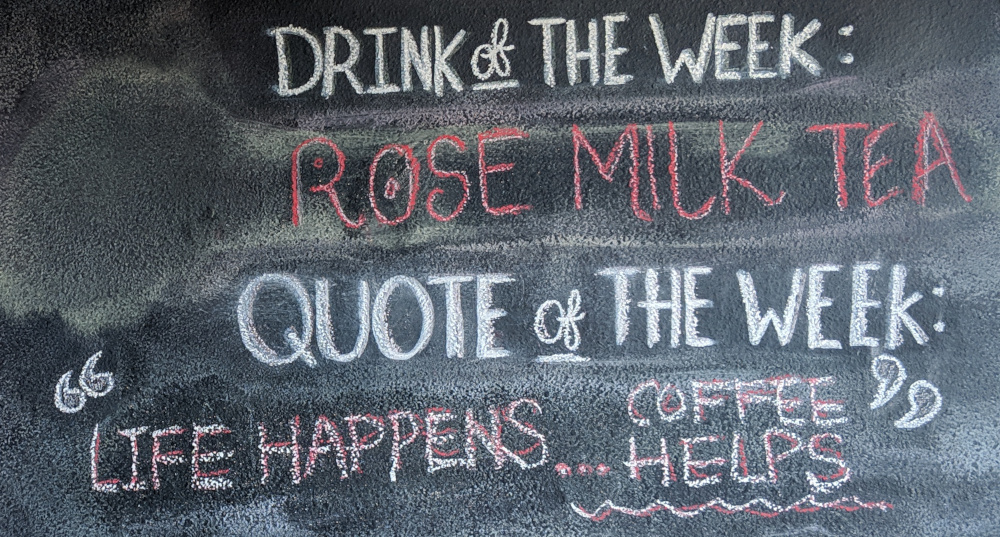 DRINK of THE WEEK:
ROSE MILK TEA
QUOTE of THE WEEK:
“LIFE HAPPENS... COFFEE
HELPS”